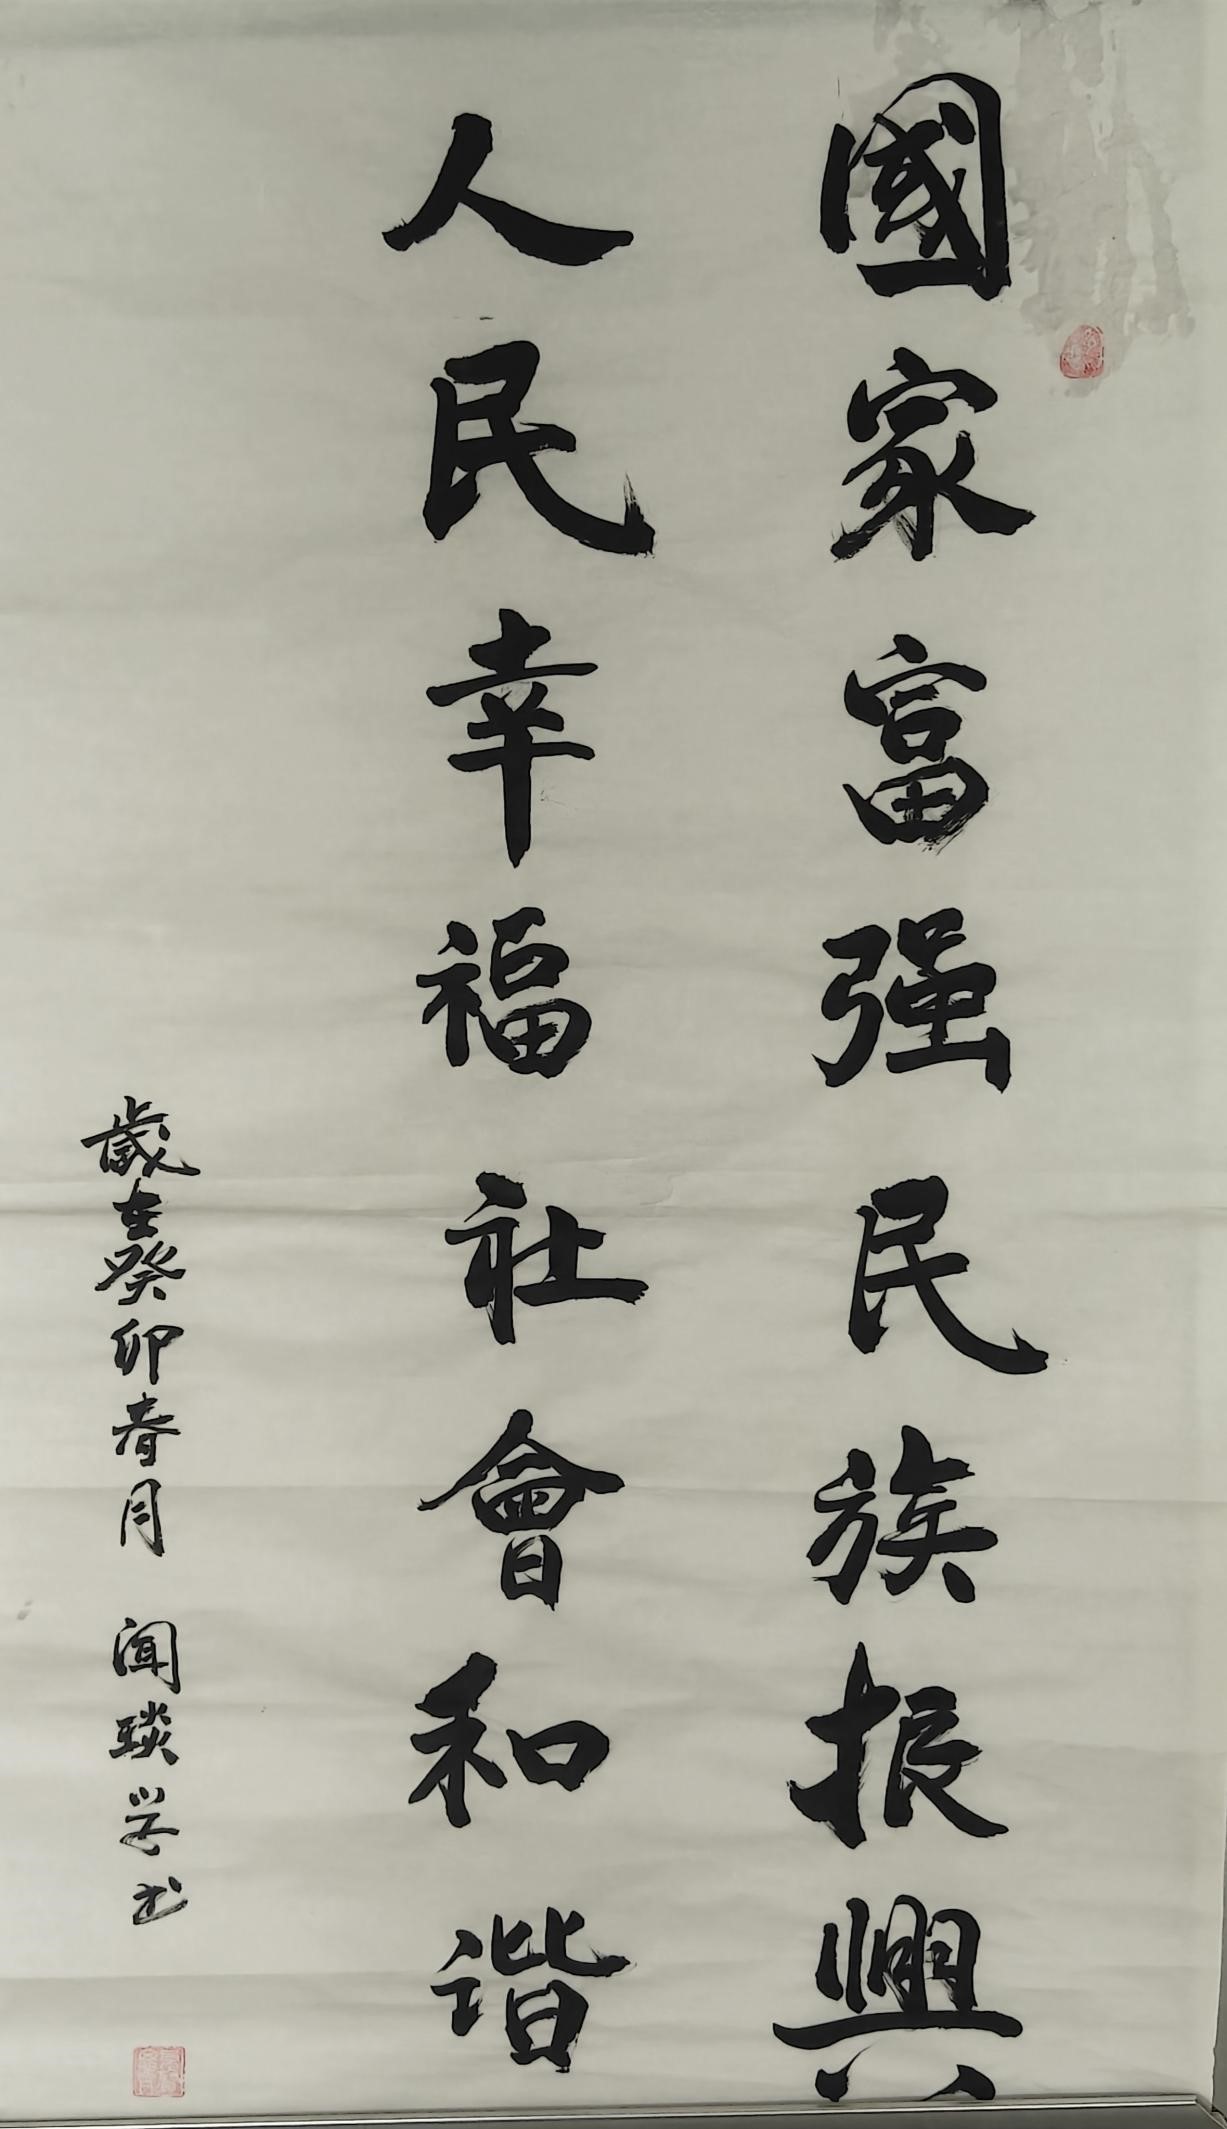 國家富强民族振興
人民幸福社會和谐
歲在癸卯春月 闻琰学书